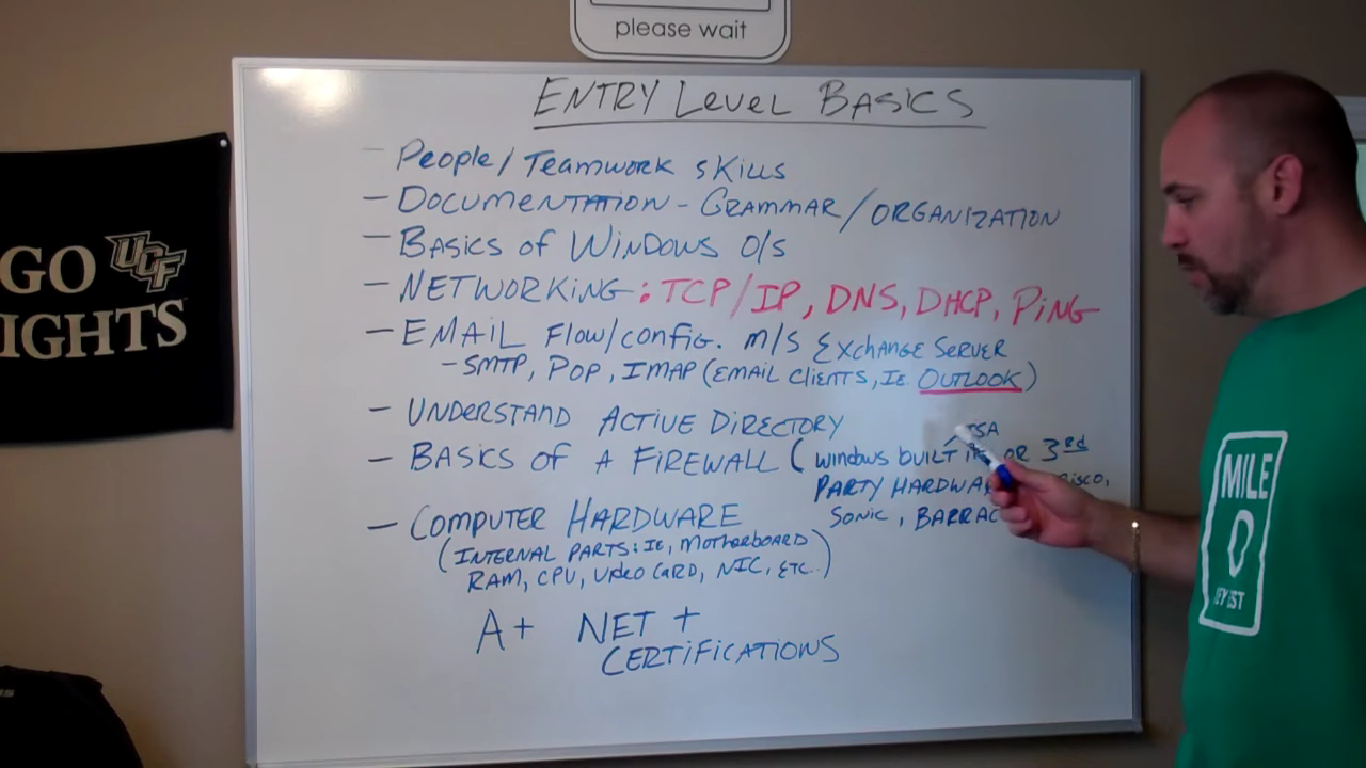 please wait
ENTRY Level BASICS
- People/Teamwork skills
- Documentation - Grammar/ORGANIZATION
- Basics of Windows O/S
- NETWORKING: TCP/IP, DNS, DHCP, PiNG
- EMAIL Flow/config. M/S Exchange Server
- SMTP, POP, IMAP (EMAIL Clients, IE OUTLOOK)
- UNDERSTAND ACTIVE DIRECTORY
- BASICS OF A FIREWALL (Windows BUILT OR 3RD
PARTY HARDWA
SONIC, BARRAC
- COMPUTER HARDWARE
(INTERNAL PARTS: IE, MOTHERBOARD
RAM, CPU, Video CARD, NIC, ETC..)
A+ NET +
CERTIFICATIONS
GO UCF
IGHTS
MILE
0